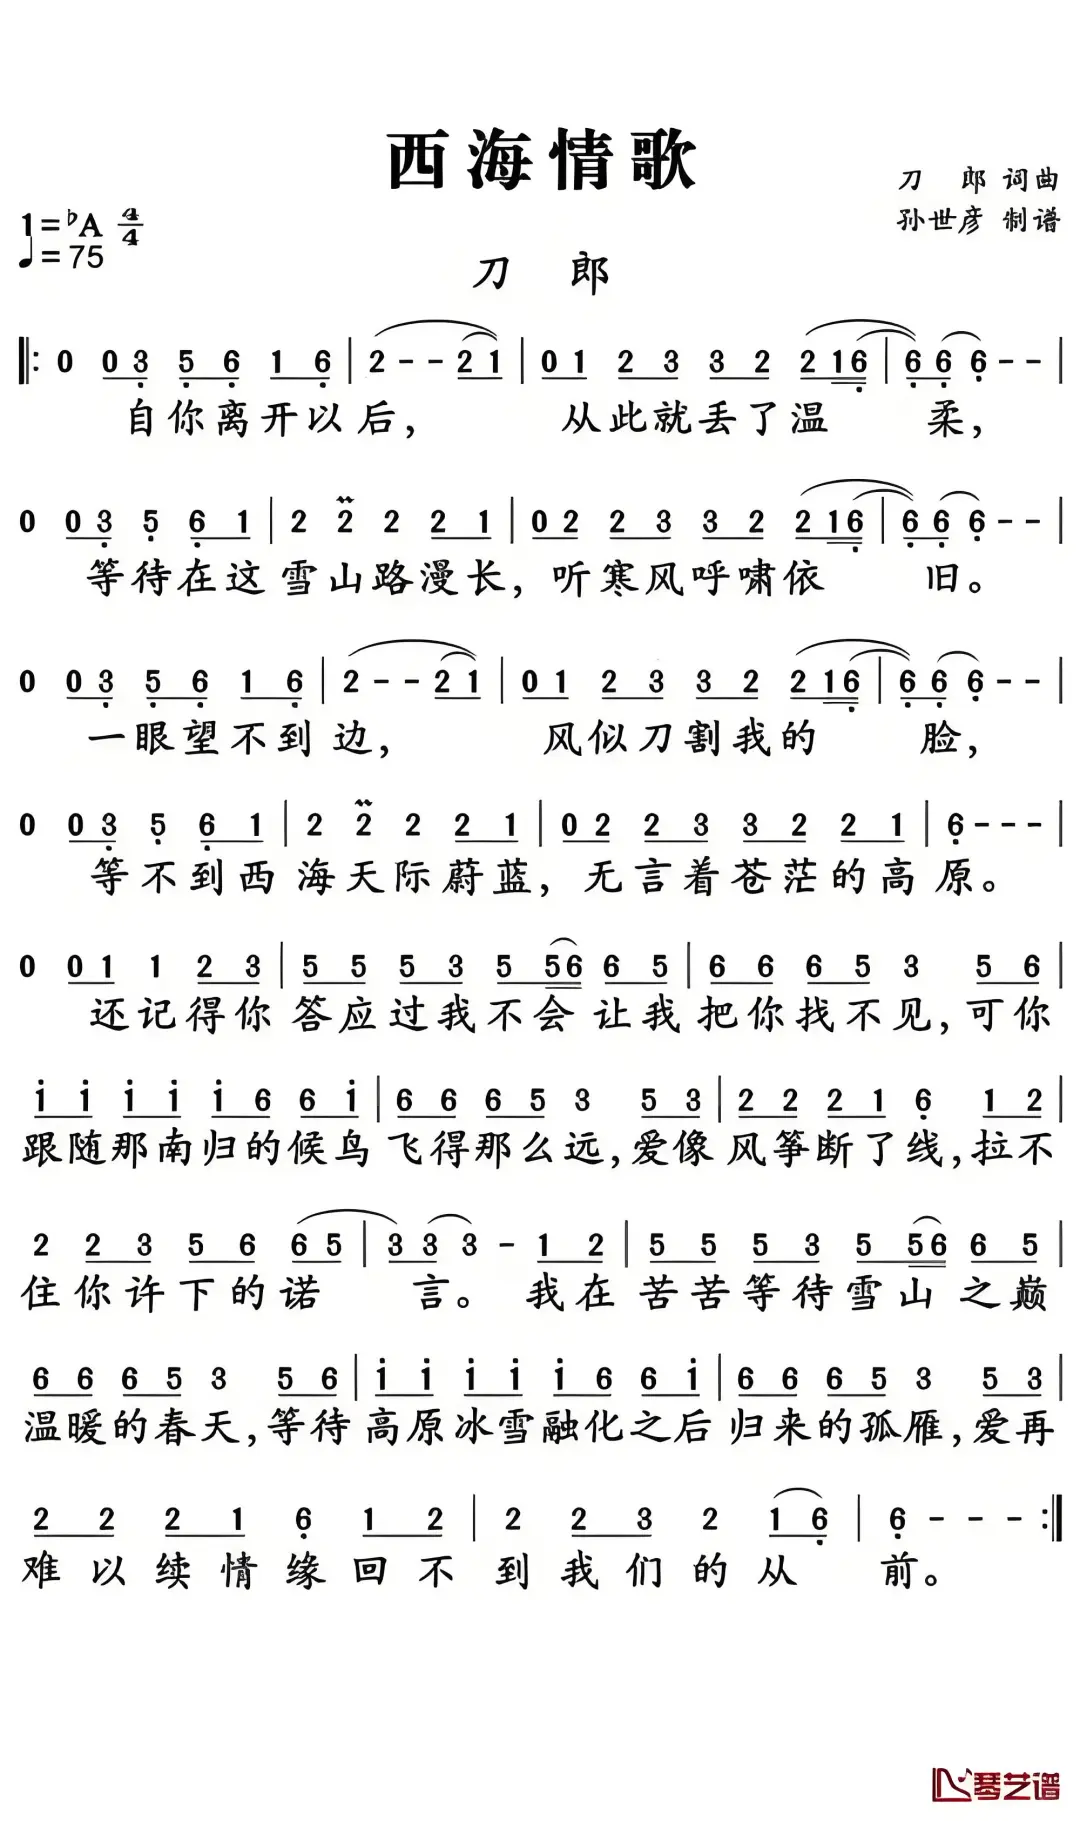 西海情歌
刀 郎 词曲
孙世彦 制谱
1=♭A 4/4
♩=75
刀 郎
‖: 0 0 3 5 6 1 6 | 2 - - 2 1 | 0 1 2 3 3 2 2 1 6 | 6 6 6 - - |
自你离开以后， 从此就丢了温 柔，
0 0 3 5 6 1 | 2 2 2 2 1 | 0 2 2 3 3 2 2 1 6 | 6 6 6 - - |
等待在这雪山路漫长，听寒风呼啸依 旧。
0 0 3 5 6 1 6 | 2 - - 2 1 | 0 1 2 3 3 2 2 1 6 | 6 6 6 - - |
一眼望不到边， 风似刀割我的 脸，
0 0 3 5 6 1 | 2 2 2 2 1 | 0 2 2 3 3 2 2 1 | 6 - - - |
等不到西海天际蔚蓝，无言着苍茫的高原。
0 0 1 1 2 3 | 5 5 5 3 5 5 6 6 5 | 6 6 6 5 3 5 6
还记得你答应过我不会让我把你找不见，可你
1 1 1 1 1 6 6 1 | 6 6 6 5 3 5 3 | 2 2 2 1 6 1 2 |
跟随那南归的候鸟飞得那么远，爱像风筝断了线，拉不
2 2 3 5 6 6 5 | 3 3 3 - 1 2 | 5 5 5 3 5 5 6 6 5 |
住你许下的诺 言。我在苦苦等待雪山之巅
6 6 6 5 3 5 6 | 1 1 1 1 1 6 6 1 | 6 6 6 5 3 5 3 |
温暖的春天，等待高原冰雪融化之后归来的孤雁，爱再
2 2 2 1 6 1 2 | 2 2 3 2 1 6 | 6 - - - :‖
难以续情缘回不到我们的从 前。
琴艺谱